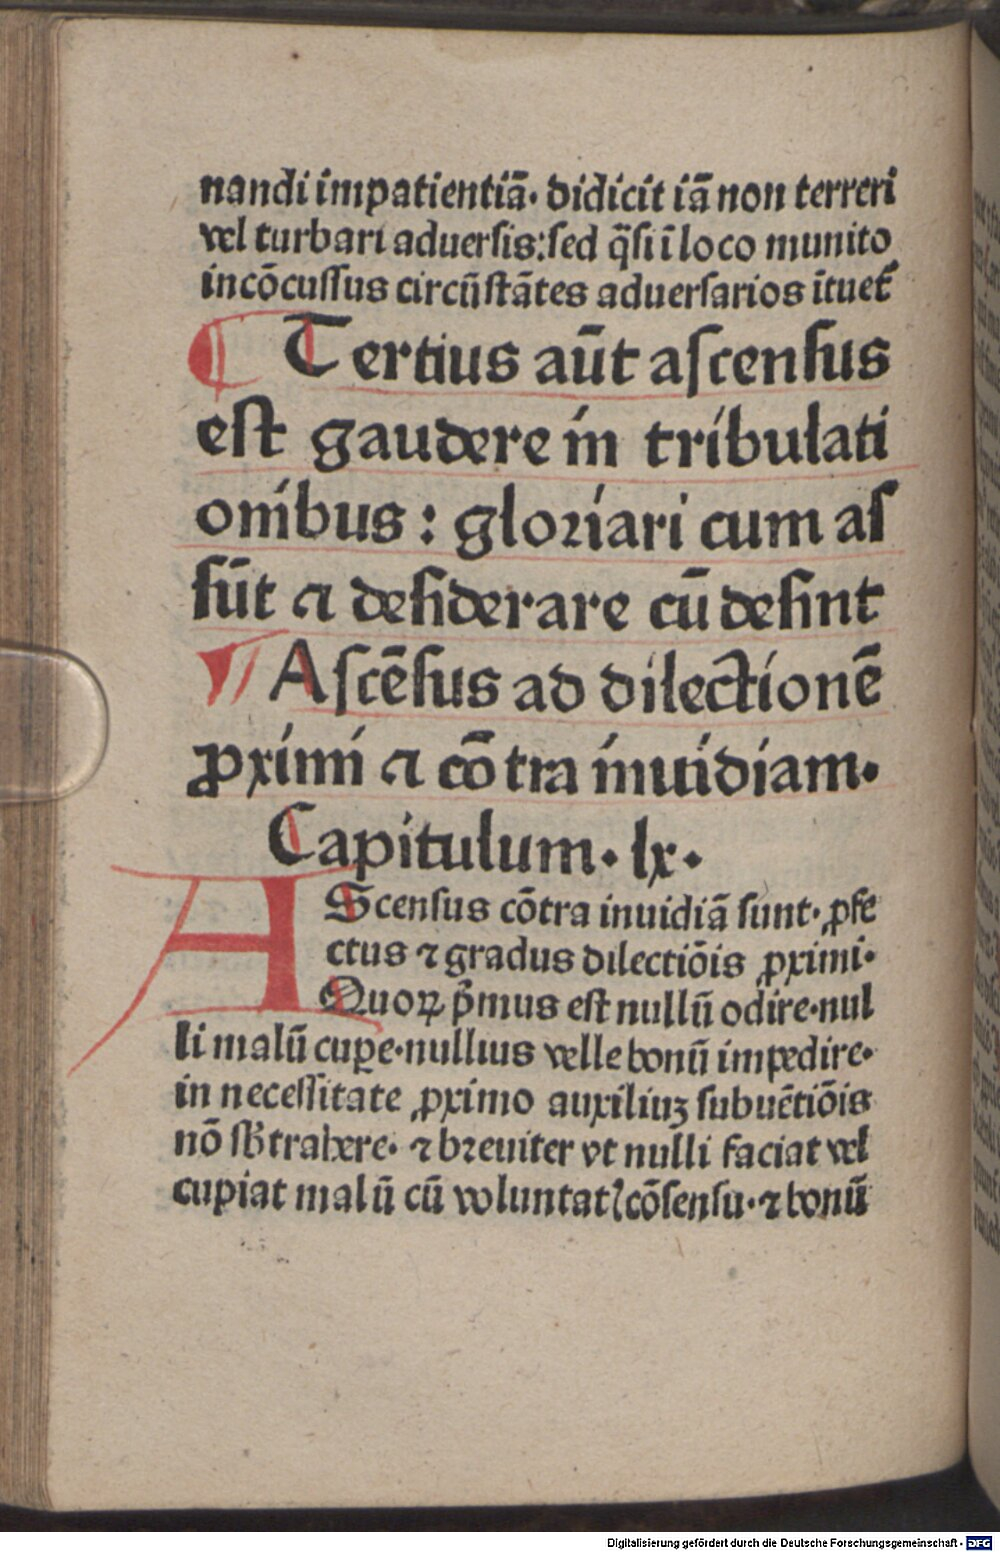 nandi impatientiā· didicit iā non terreri
vel turbari aduersis: sed q̄si ī loco munito
incōcussus circūstātes aduersarios ītuet᷑
¶ Tertius aūt ascensus
est gaudere in tribulati
onibus : gloriari cum as
sūt ⁊ desiderare cū desint
¶ Ascēsus ad dilectionē
ꝓximi ⁊ cōtra inuidiam·
Capitulum· lx·
AScensus cōtra inuidiā sunt· ꝓfe
ctus ⁊ gradus dilectiōis ꝓximi·
Quoꝝ p̄mus est nullū odire· nul
li malū cuꝑe· nullius velle bonū impedire·
in necessitate ꝓximo auxiliuꝫ subuētiōis
nō sb̄trahere· ⁊ breuiter vt nulli faciat vel
cupiat malū cū voluntatꝭ cōsensu· ⁊ bonū
Digitalisierung gefördert durch die Deutsche Forschungsgemeinschaft - DFG